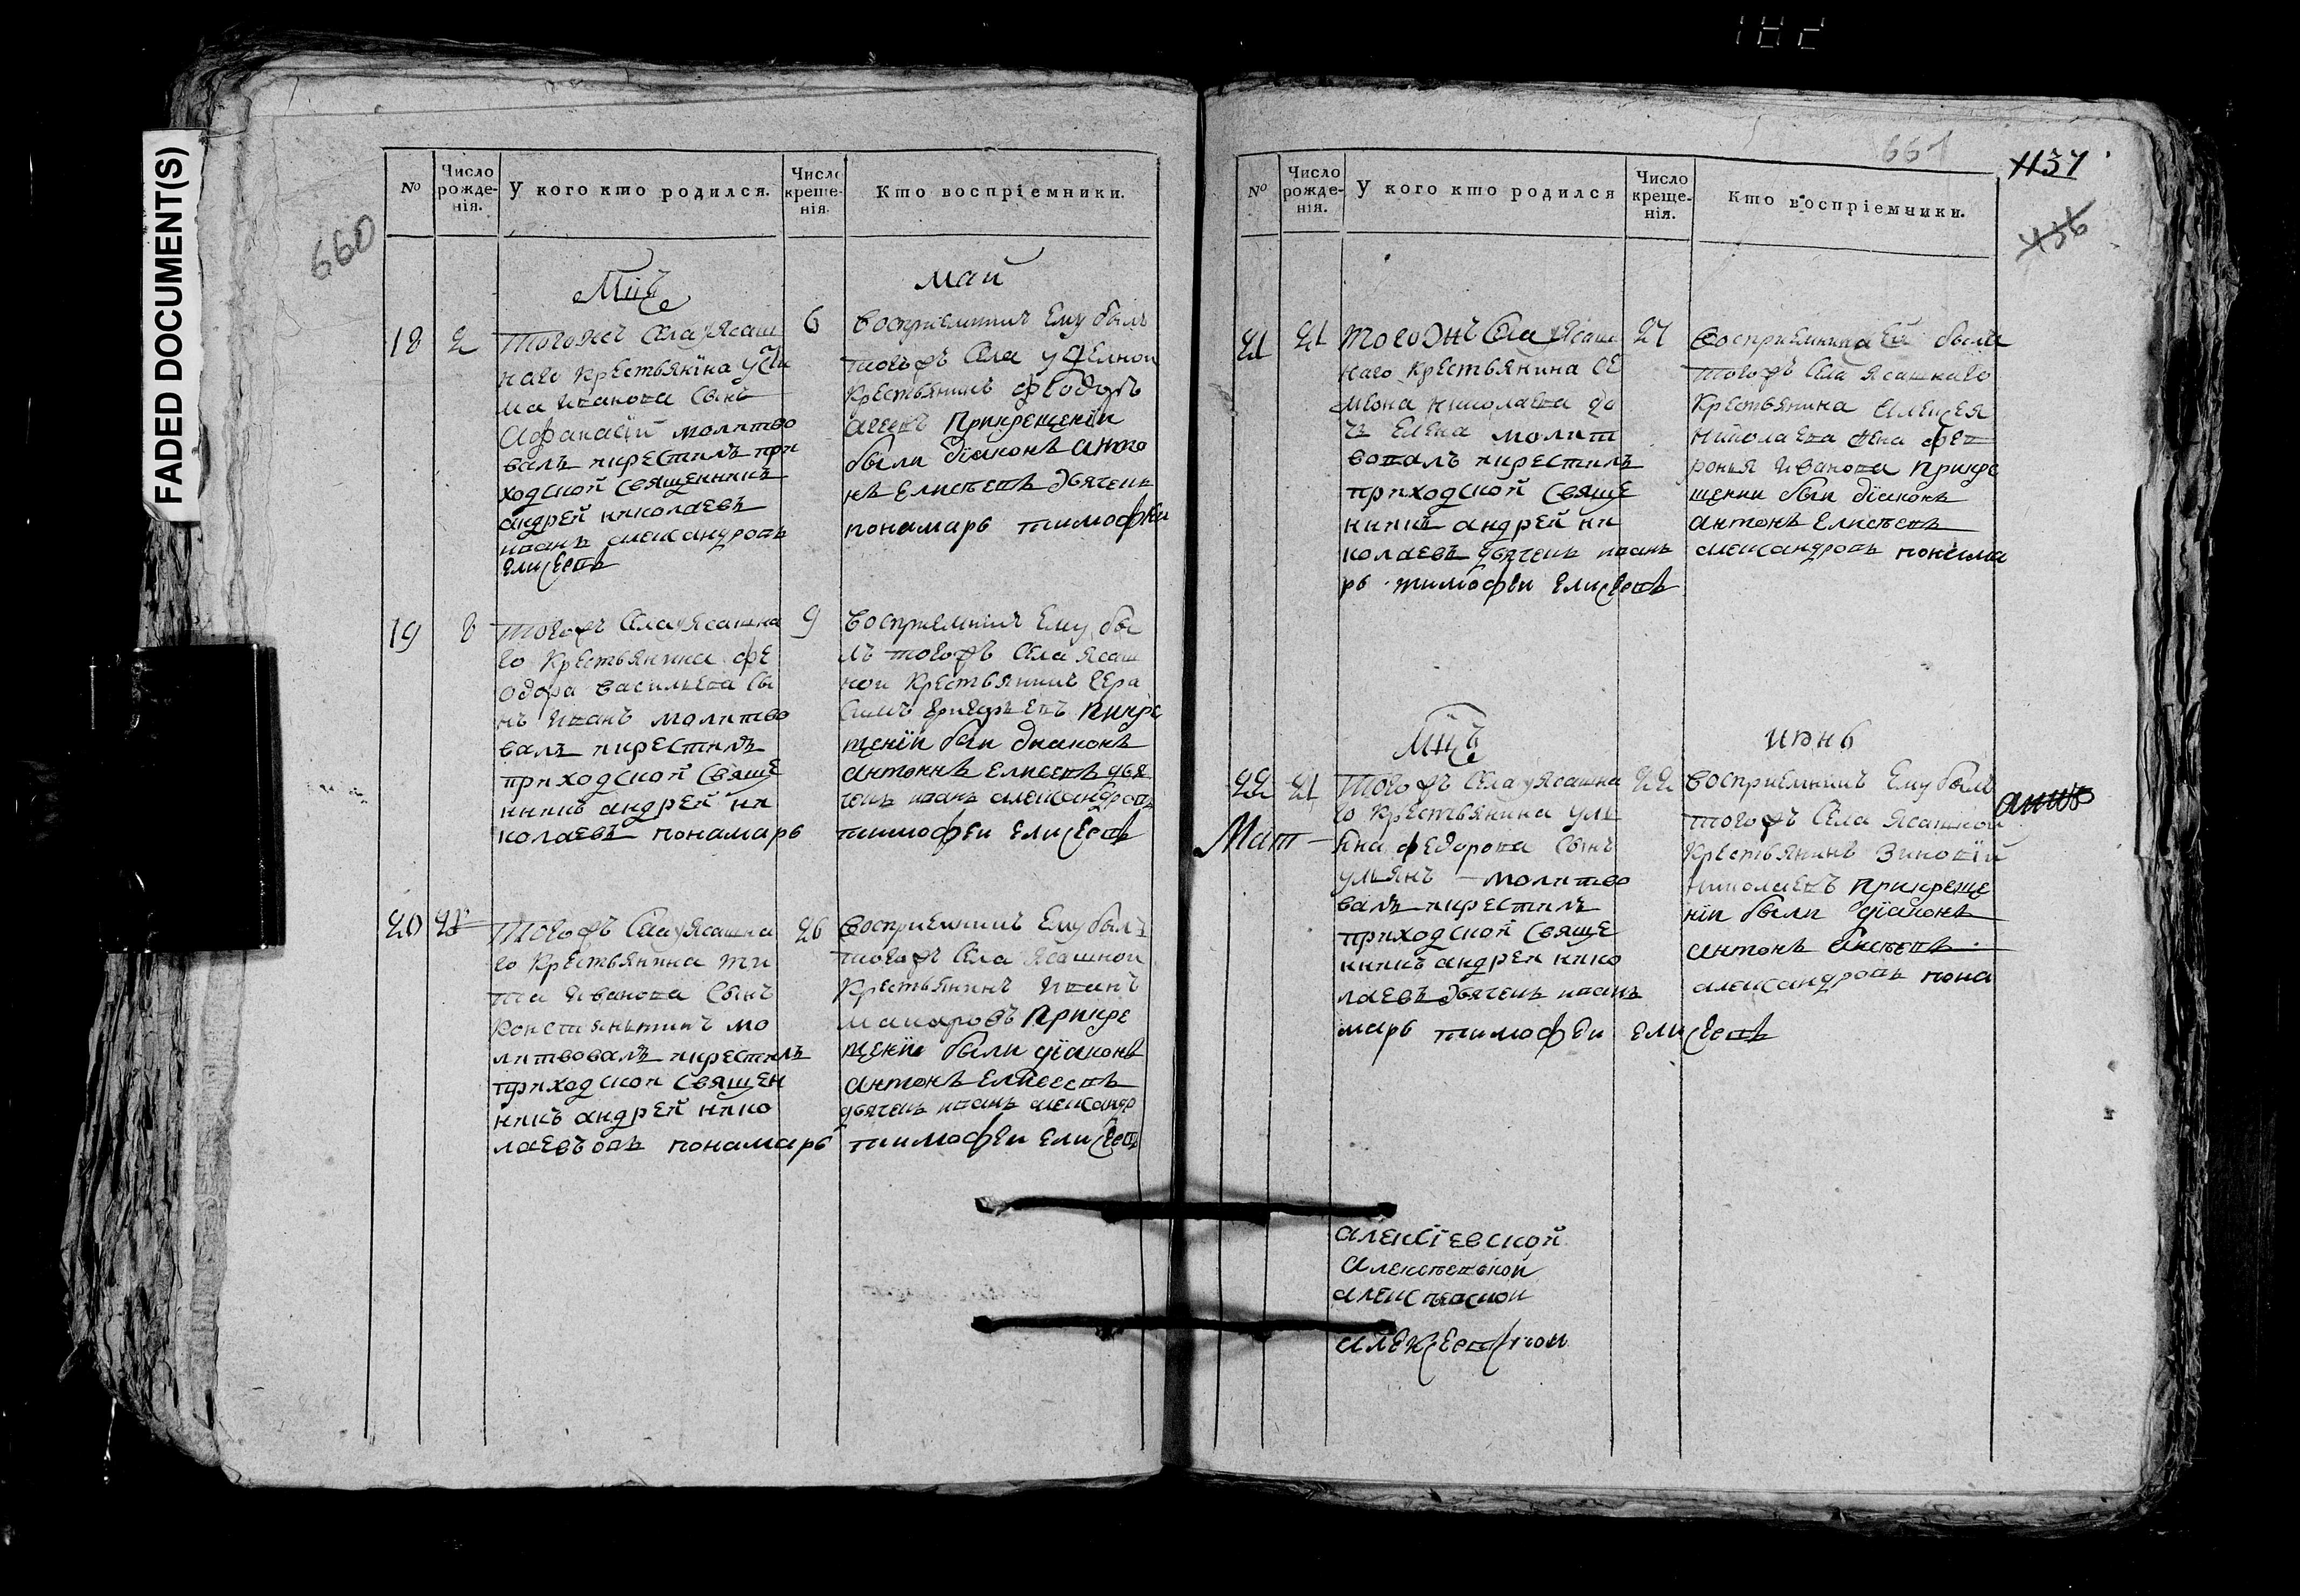 182
FAADED DOCUMENT(S)
660
№
Число рожде-нія.
У кого кто родился.
Число креще-нія.
Кто воспріемники.
Мцъ
май
18
2
тогожъ села уясаш
наго крестьянина
ма иванова сынъ
Афанасій молитво
валъ икрестилъ при
ходской священникъ
андрей николаевъ
иванъ александровъ
елисеевъ
6
воспріемникъ ему былъ
тогожъ села удельной
крестьянинъ феодоръ
прикрещеніи
были діаконъ анто
нъ елисѣевъ дьячекъ
пономарь тимофеи
19
8
тогожъ села уясашна
го крестьянина фе
одора васильева сы
нъ иванъ молитво
валъ икрестилъ
приходской свяще
никъ андрей ни
колаевъ понамарь
9
воспріемникъ ему бы
лъ тогожъ села ясаш
ной крестьянинъ гера
симъ прикре
щеніи были диаконъ
антонъ елисеевъ дья
чекъ иванъ александровъ
тимофеи елисеевъ
20
тогожъ села уясашна
го крестьянина ти
та иванова сынъ
константинъ мо
литвовалъ икрестилъ
приходской священ
никъ андрей нико
лаевъ овъ понамарь
26
воспріемникъ ему былъ
тогожъ села ясашной
крестьянинъ иванъ
макаровъ прикре
щеніи были діаконъ
антонъ елисеевъ
дьячекъ иванъ александр
тимофеи елисеевъ
661
1137
436
№
Число рожде-нія.
У кого кто родился
Число креще-нія.
Кто воспріемники.
21
21
тогожъ села уясаш
наго крестьянина се
мена николаева до
чь елена молит
вовалъ икрестилъ
приходской свяще
никъ андрей ни
колаевъ дьячекъ иванъ
рь тимофеи елисеевъ
27
воспріемница ей была
тогожъ села ясашнаго
крестьянина алексея
николаева жена фев
ронья иванова прикре
щении были діаконъ
антонъ елисѣевъ
александровъ понама
Мцъ
июнь
22
21
Мат
тогожъ села уясашна
го крестьянина уль
яна федорова сынъ
ульянъ молитво
валъ икрестилъ
приходской свяще
никъ андрей нико
лаевъ дьячекъ иванъ
марь тимофеи елисеевъ
22
воспріемникъ ему былъ
тогожъ села ясашной
крестьянинъ зиновій
николаевъ прикреще
ніи были діаконъ
антонъ елисѣевъ
александровъ пона
алексіевской
Алексѣевской
алексѣевской
алексеевской